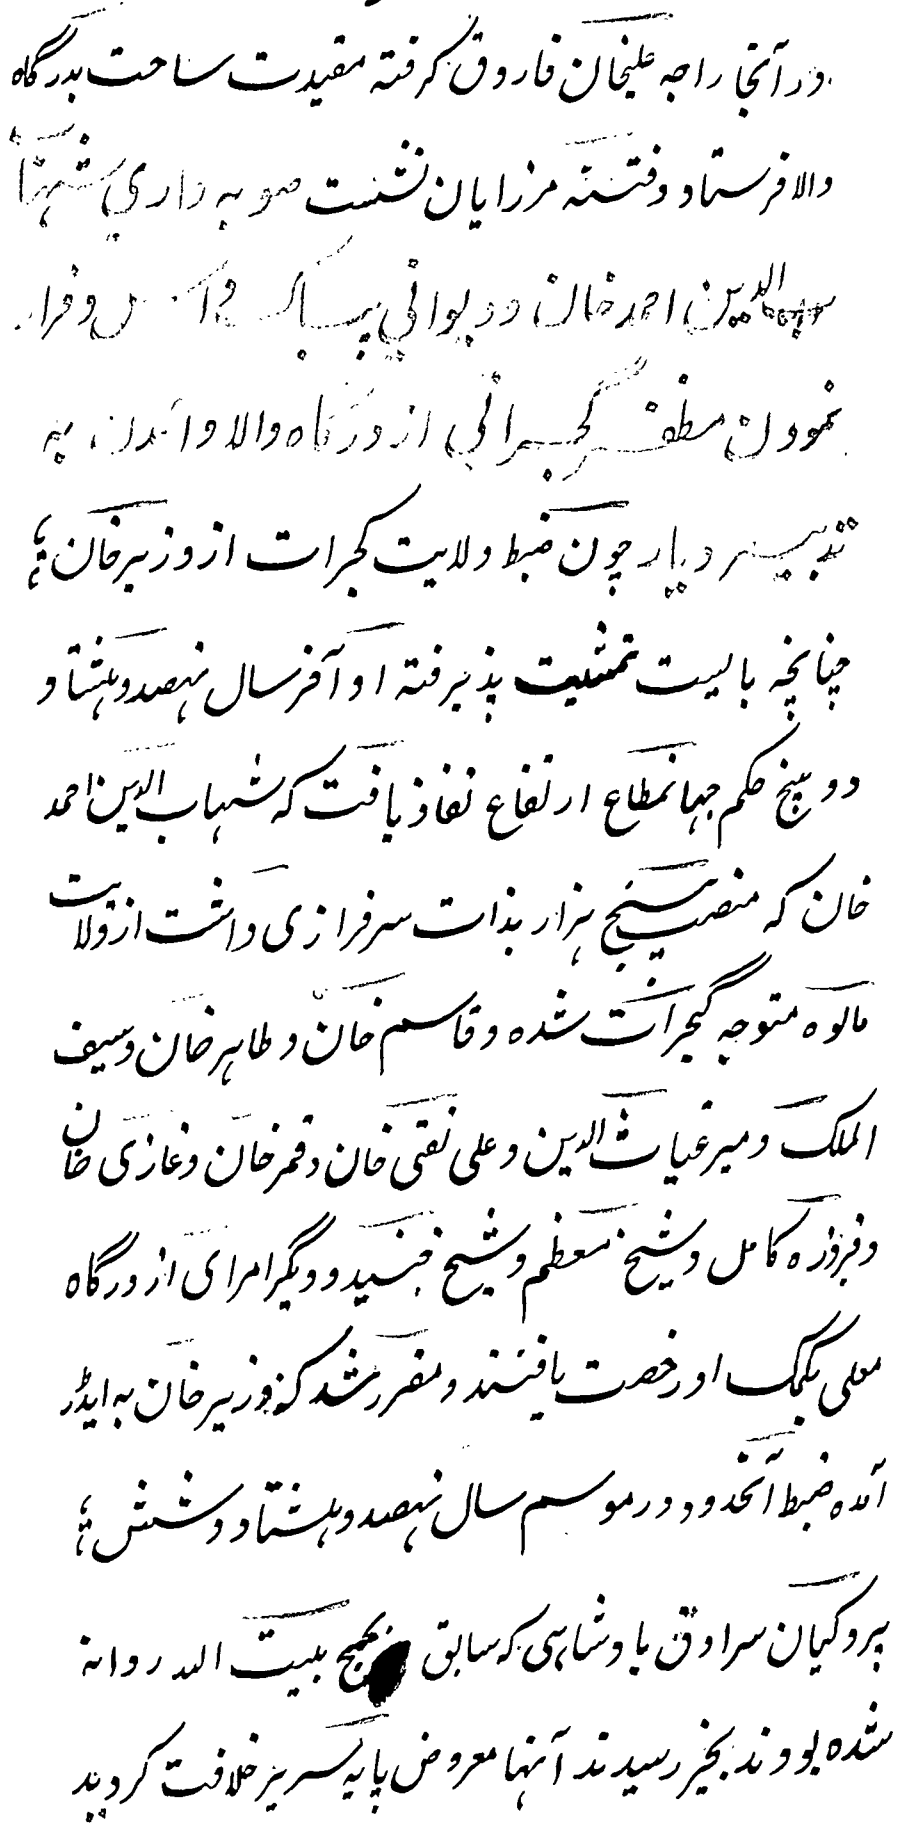 در آنجا راجه علیخان فاروقی گرفته مقیدت ساخت بدرگاه
والا فرستاد و فتنه مرزایان نشست صوبه داری شهاب
الدین احمد خان و دیوانی و فرار
نمودن مظفر گجراتی از درگاه والا و آمدن به
تدبیر دیار چون ضبط ولایت گجرات از وزیر خان
چنانچه بایست تمشیت پذیرفته او آخر سال نهصد و هشتاد و
دو پنج حکم جهانمطاع ارتفاع نفاذ یافت که شهاب الدین احمد
خان که منصب پنج هزار بذات سرفرازی داشت از ولایت
مالوه متوجه گجرات شده و قاسم خان و طاهر خان و سیف
الملک و میر غیاث الدین و علی نقی خان و قمر خان و غازی خان
و فیروزه کامل و شیخ معظم و شیخ جنید و دیگر امرای از درگاه
معلی بکمک او رخصت یافتند و مقرر شد که وزیر خان به ایڈر
آمده ضبط آنحدود در موسم سال نهصد و هشتاد و شش
پروگیان سرادق پادشاهی که سابق بحج بیت الله روانه
شده بودند بخیر رسیدند آنها معروض پایه سریر خلافت گردید